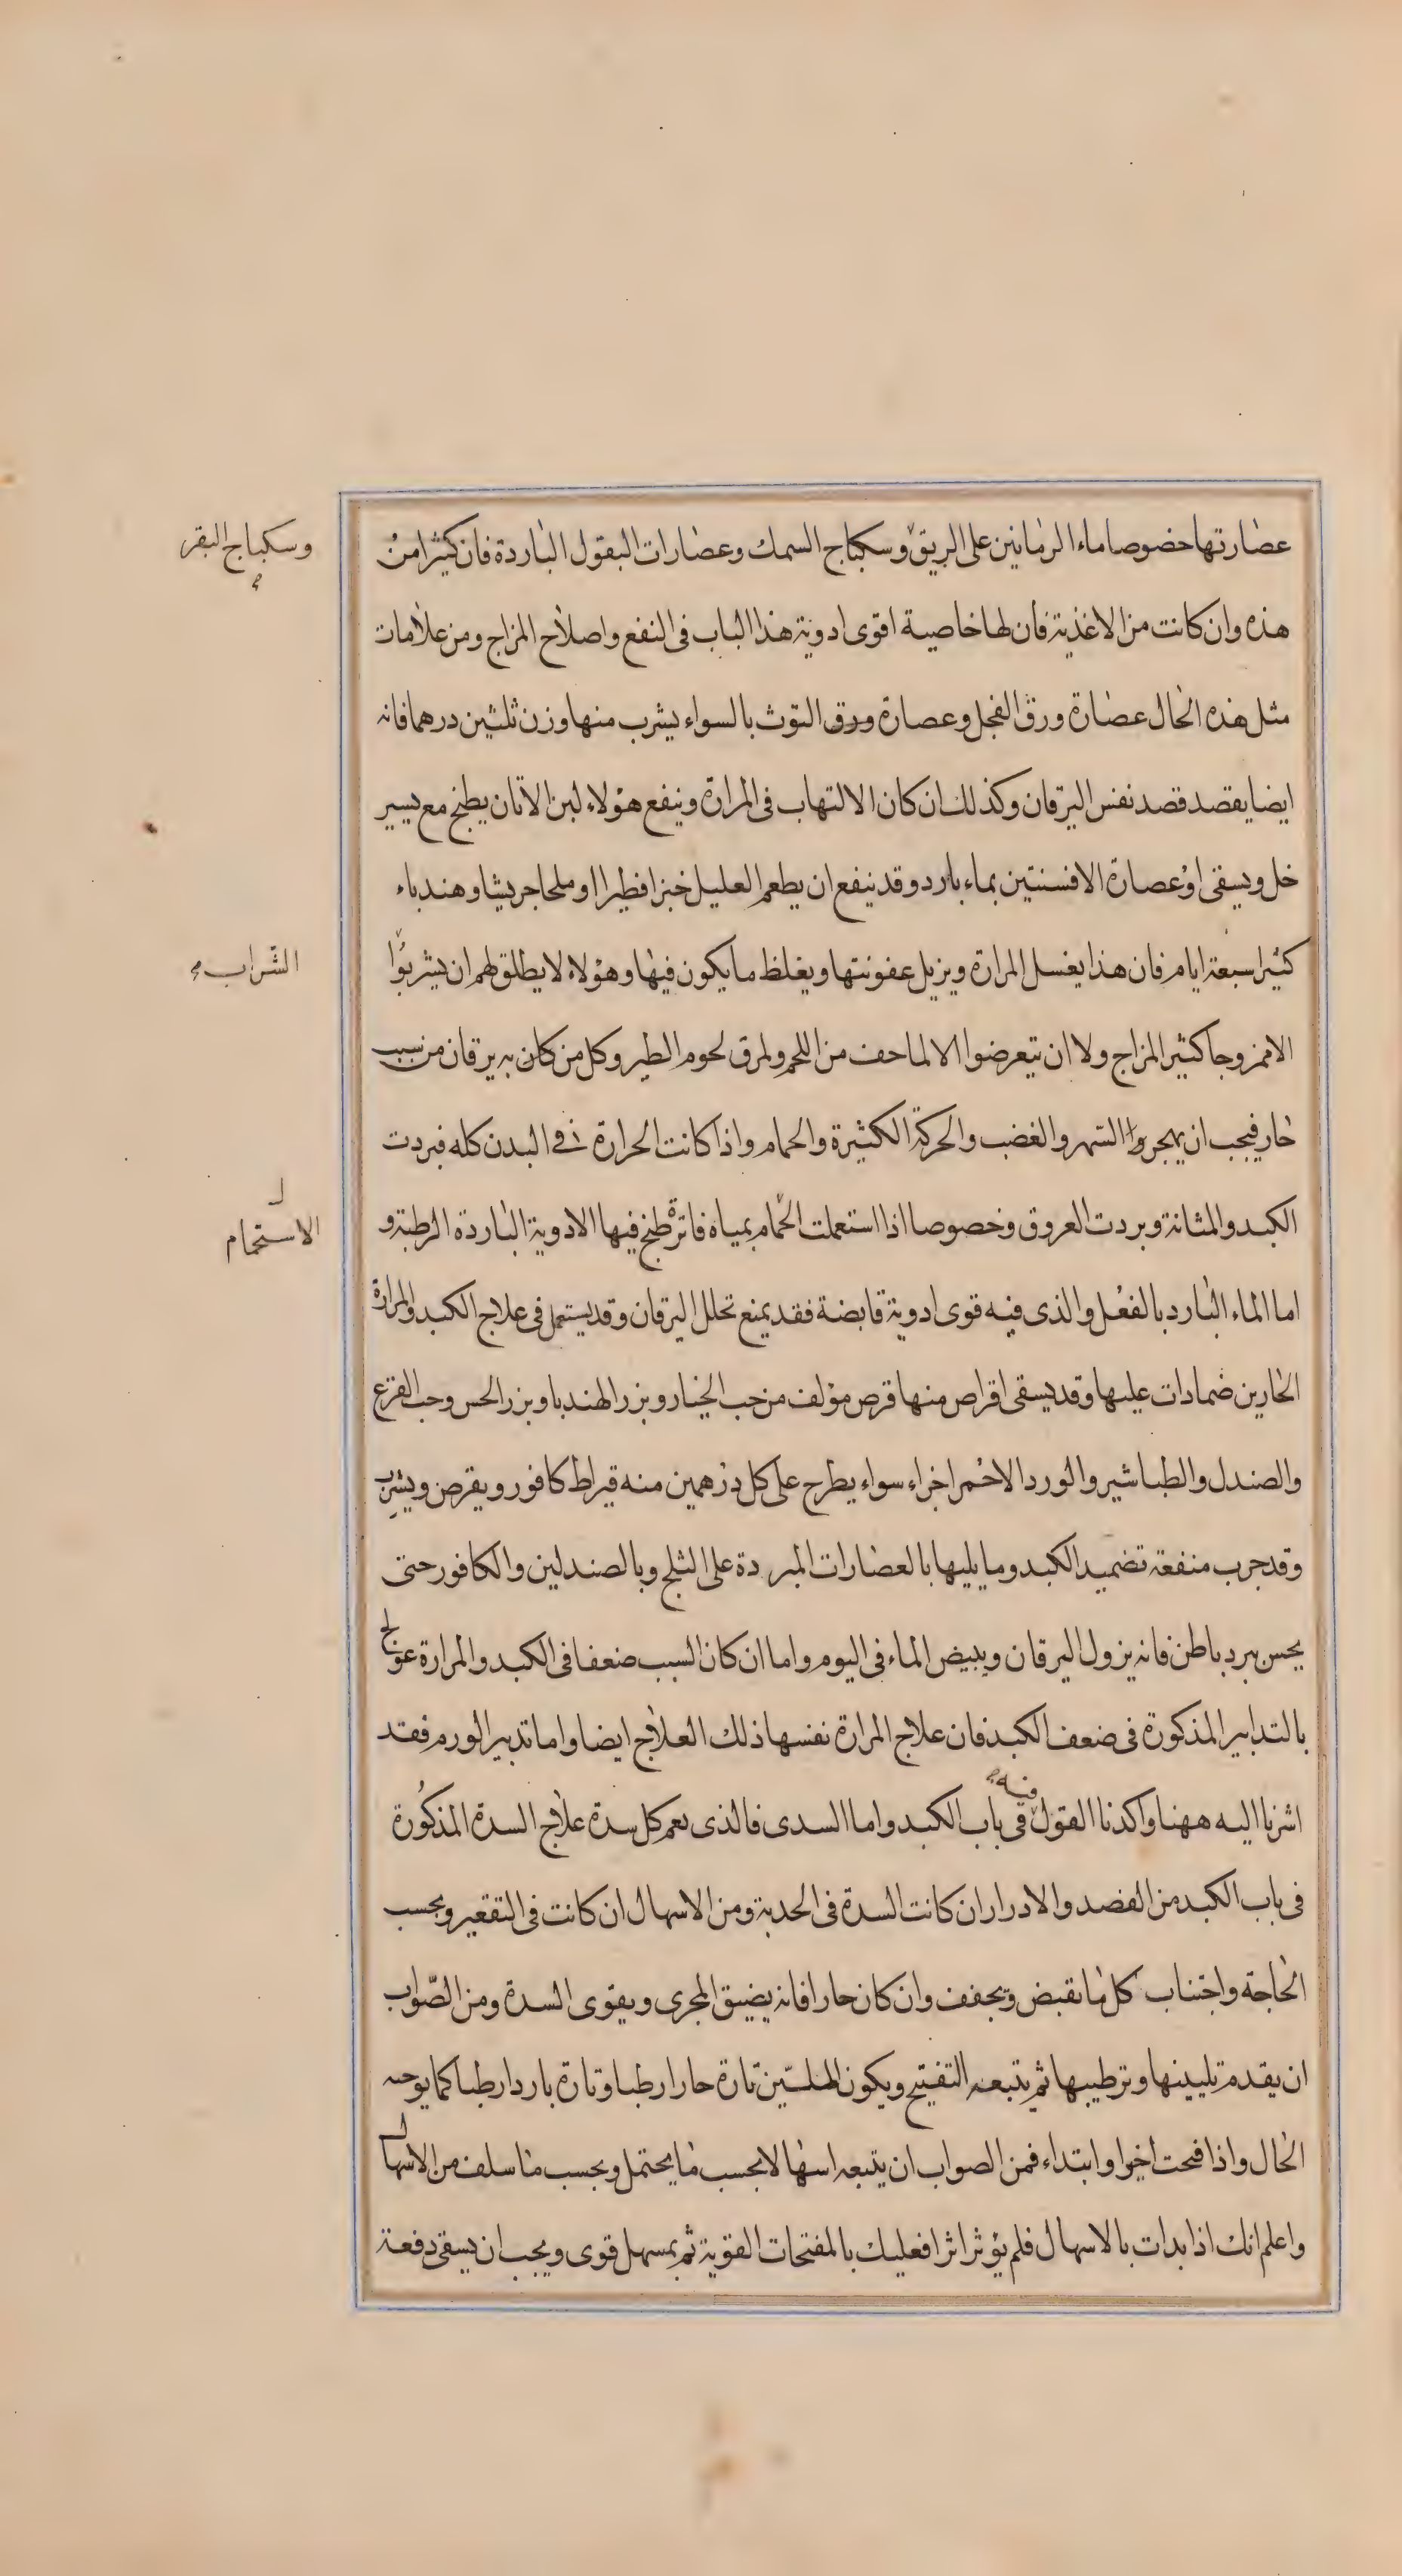 عصارتها خصوصا ماء الرمانين على الريق وسكباج السمك وعصارات البقول الباردة فان كثيرا من
وسكباج البقر
هذه وان كانت من الاغذية فان لها خاصية اقوى ادوية هذا الباب فى النفع واصلاح المزاج ومن علامات
مثل هذه الحال عصارة ورق الفجل وعصارة ورق التوث بالسواء يشرب منها وزن ثلثين درهما فانه
ايضا يقصد قصد نفس اليرقان وكذلك ان كان الالتهاب فى المرارة وينفع هؤلاء لبن الاتان يطبخ مع يسير
خل ويسقى او عصارة الافسنتين بماء بارد وقد ينفع ان يطعم العليل خبزا فطيرا او ملحا جريشا وهندباء
كثيرا سبعة ايام فان هذا يغسل المرارة ويزيل عفونتها ويغلظ ما يكون فيها وهؤلاء لا يطلق لهم ان يشربوا
الشراب
الا ممزوجا كثير المزاج ولا ان يتعرضوا الا لما خف من اللحم ولمرق لحوم الطير وكل من كان به يرقان من سبب
حار فيجب ان يهجروا السهر والغضب والحركة الكثيرة والحمام واذا كانت الحرارة فى البدن كله فبردت
الكبد والمثانة وبردت العروق وخصوصا اذا استعملت الحمام بمياه فاترة طبخ فيها الادوية الباردة الرطبة و
الاستحمام
اما الماء البارد بالفعل والذى فيه قوى ادوية قابضة فقد يمنع تحلل اليرقان وقد يستعمل فى علاج الكبد والمرارة
الحارين ضمادات عليها وقد يسقى اقراص منها قرص مؤلف من حب الخيار وبزر الهندبا وبزر الخس وحب القرع
والصندل والطباشير والورد الاحمر اجزاء سواء يطرح على كل درهمين منه قيراط كافور ويقرص ويشرب
وقد جرب منفعة تضميد الكبد وما يليها بالعصارات المبردة على الثلج وبالصندلين والكافور حتى
يحس ببرد باطن فانه يزول اليرقان ويبيض الماء فى اليوم واما ان كان السبب ضعفا فى الكبد والمرارة عولج
بالتدابير المذكورة فى ضعف الكبد فان علاج المرارة نفسها ذلك العلاج ايضا واما تدبير الورم فقد
اشرنا اليه ههنا واكدنا القول فيه فى باب الكبد واما السدى فالذى يعم كل سدة علاج السدة المذكورة
فى باب الكبد من الفصد والادرار ان كانت السدة فى الحدبة ومن الاسهال ان كانت فى التقعير وبحسب
الحاجة واجتناب كل ما يقبض ويجفف وان كان حارا فانه يضيق المجرى ويقوى السدة ومن الصواب
ان يقدم تليينها وترطيبها ثم يتبعه التفتيح ويكون الملين تارة حارا رطبا وتارة باردا رطبا كما يوجبه
الحال واذا فتحت اخيرا وابتداء فمن الصواب ان يتبعه اسهالا بحسب ما يحتمل وبحسب ما سلف من الاسهال
واعلم انك اذا بدات بالاسهال فلم يؤثر اثرا فعليك بالمفتحات القوية ثم بمسهل قوى ويجب ان يسقى دفعة